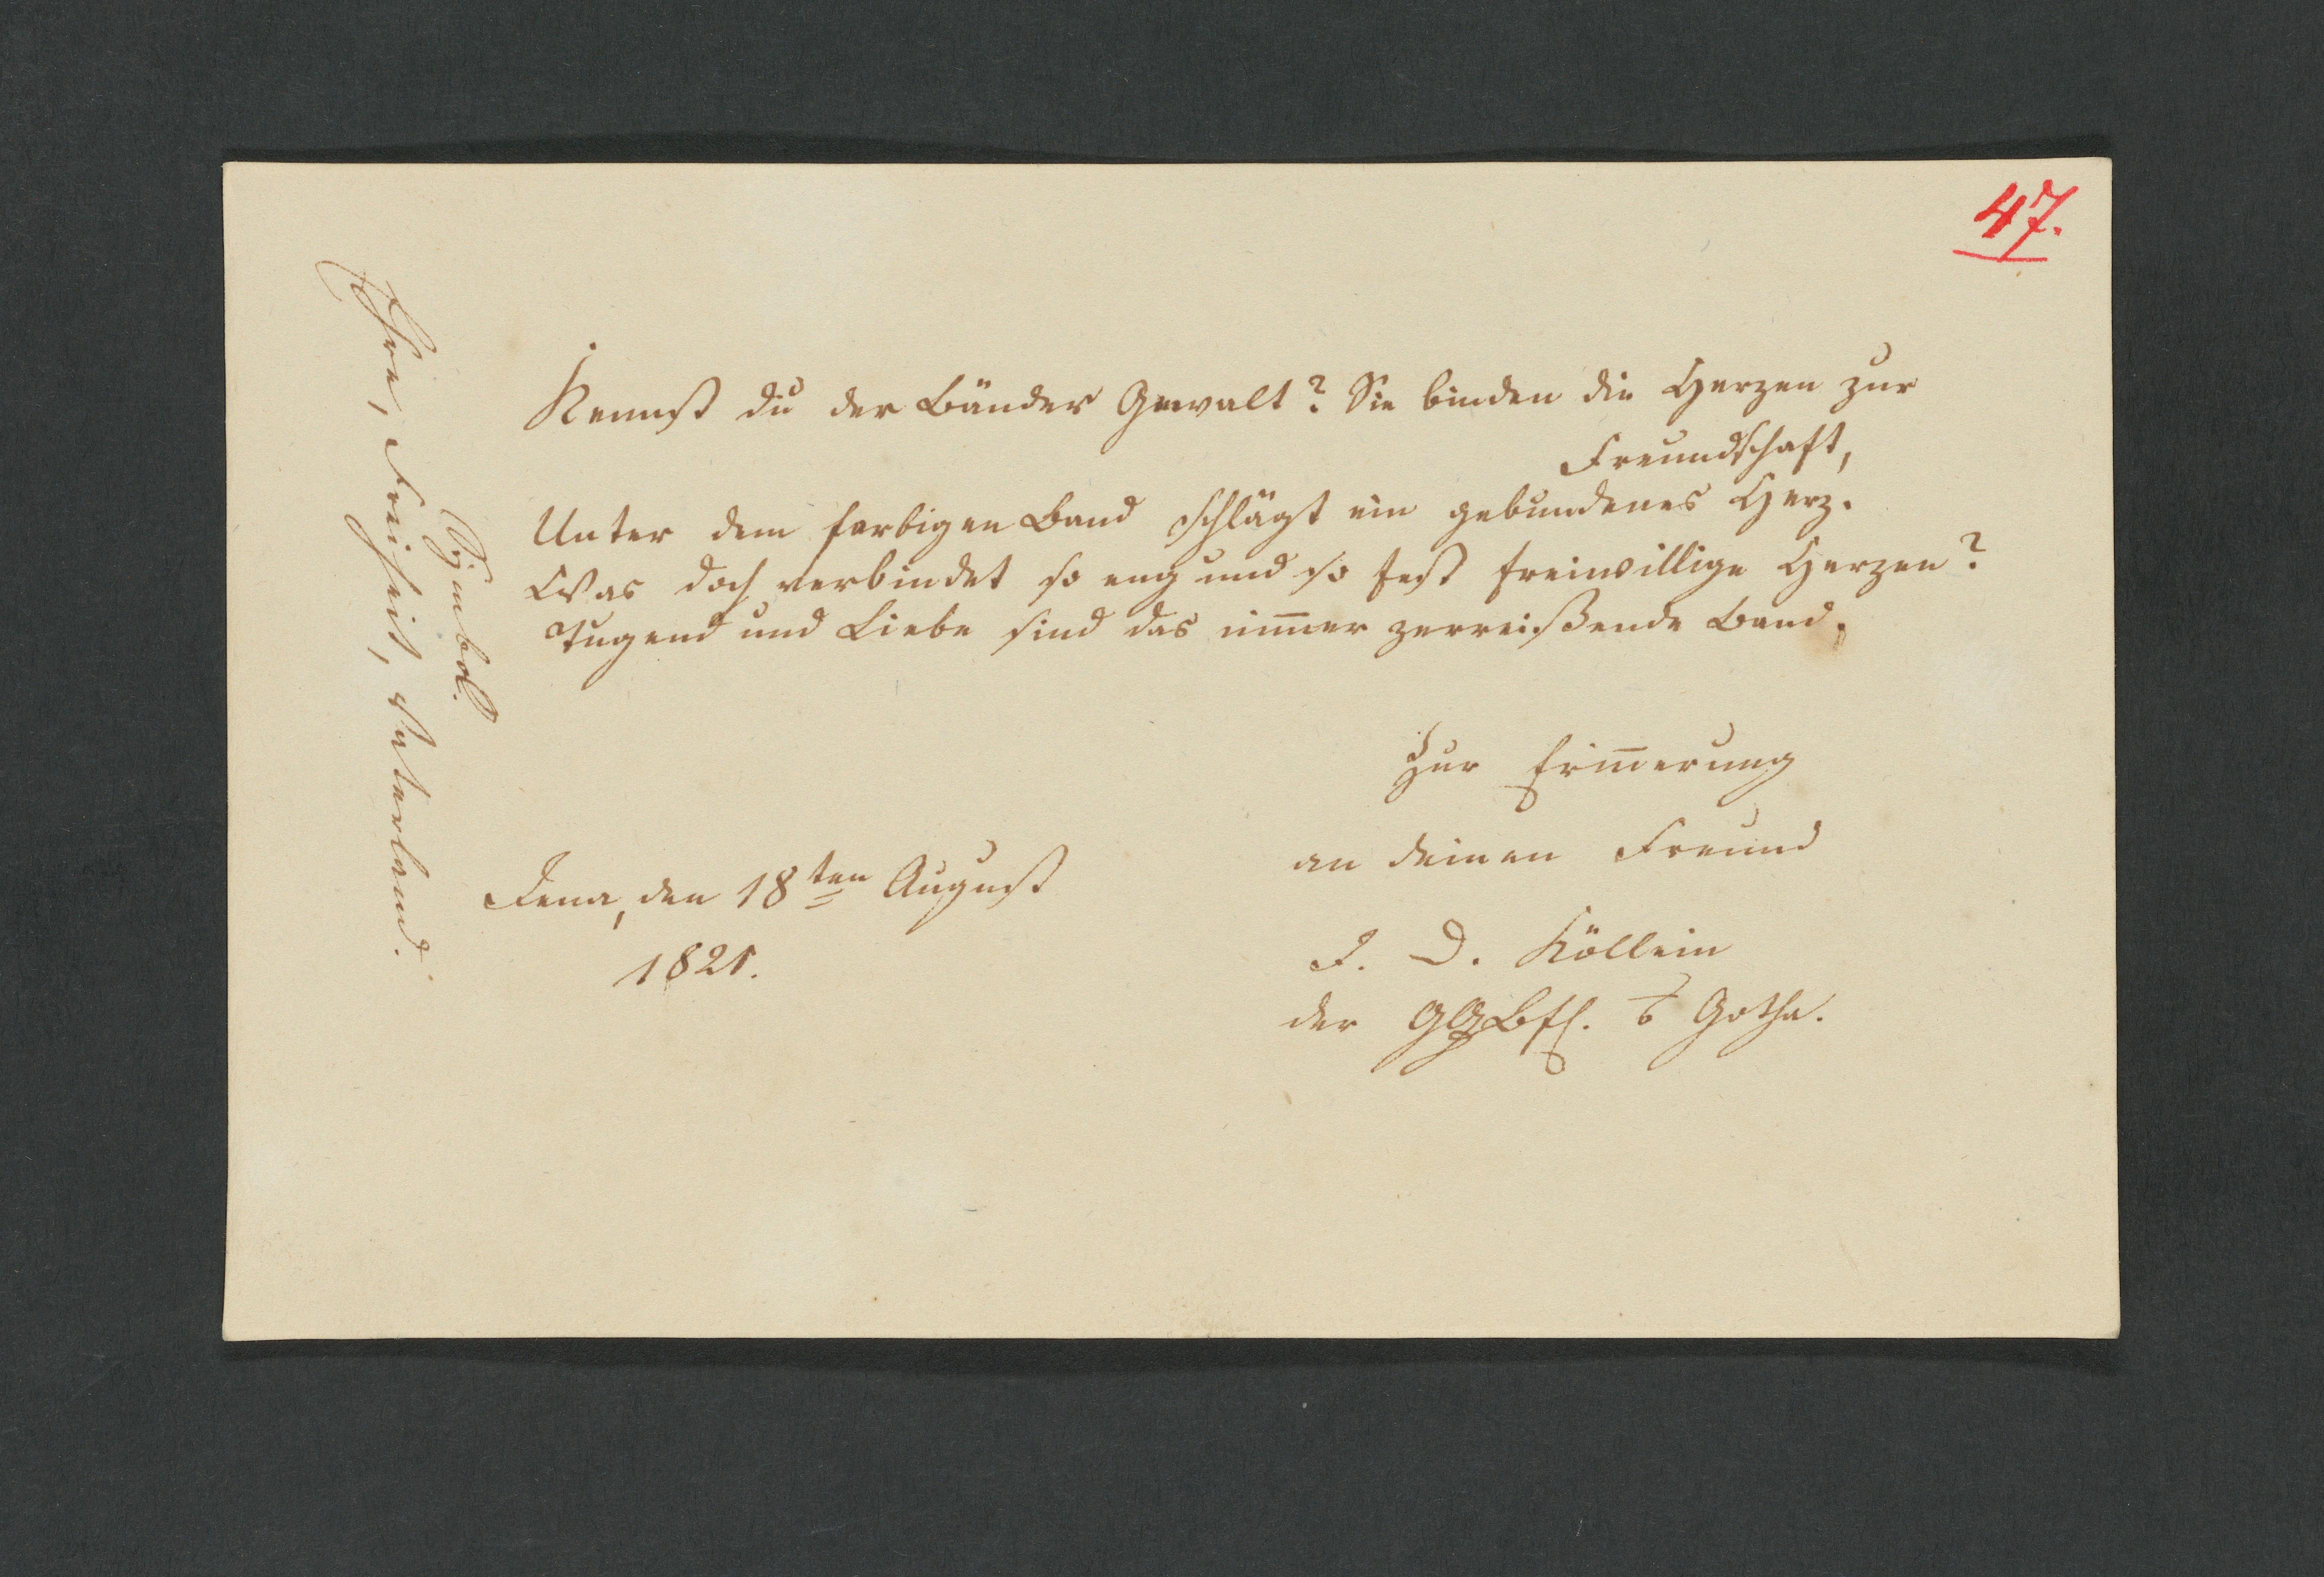 47.
Kennst du der Bänder Gewalt? Sie binden die Herzen zur
Freundschaft,
Unter dem farbigen Band schlägt ein gebundenes Herz.
Was doch verbindet so eng und so fest freiwillige Herzen?
Tugend und Liebe sind das nimmer zerreißende Band.
Zur Erinnerung
an deinen Freund
J. D. Köllein
der GGBfl. z Gotha.
Jena, den 18ten August
1821.
Symbol.
Ehre, Freiheit, Vaterland.